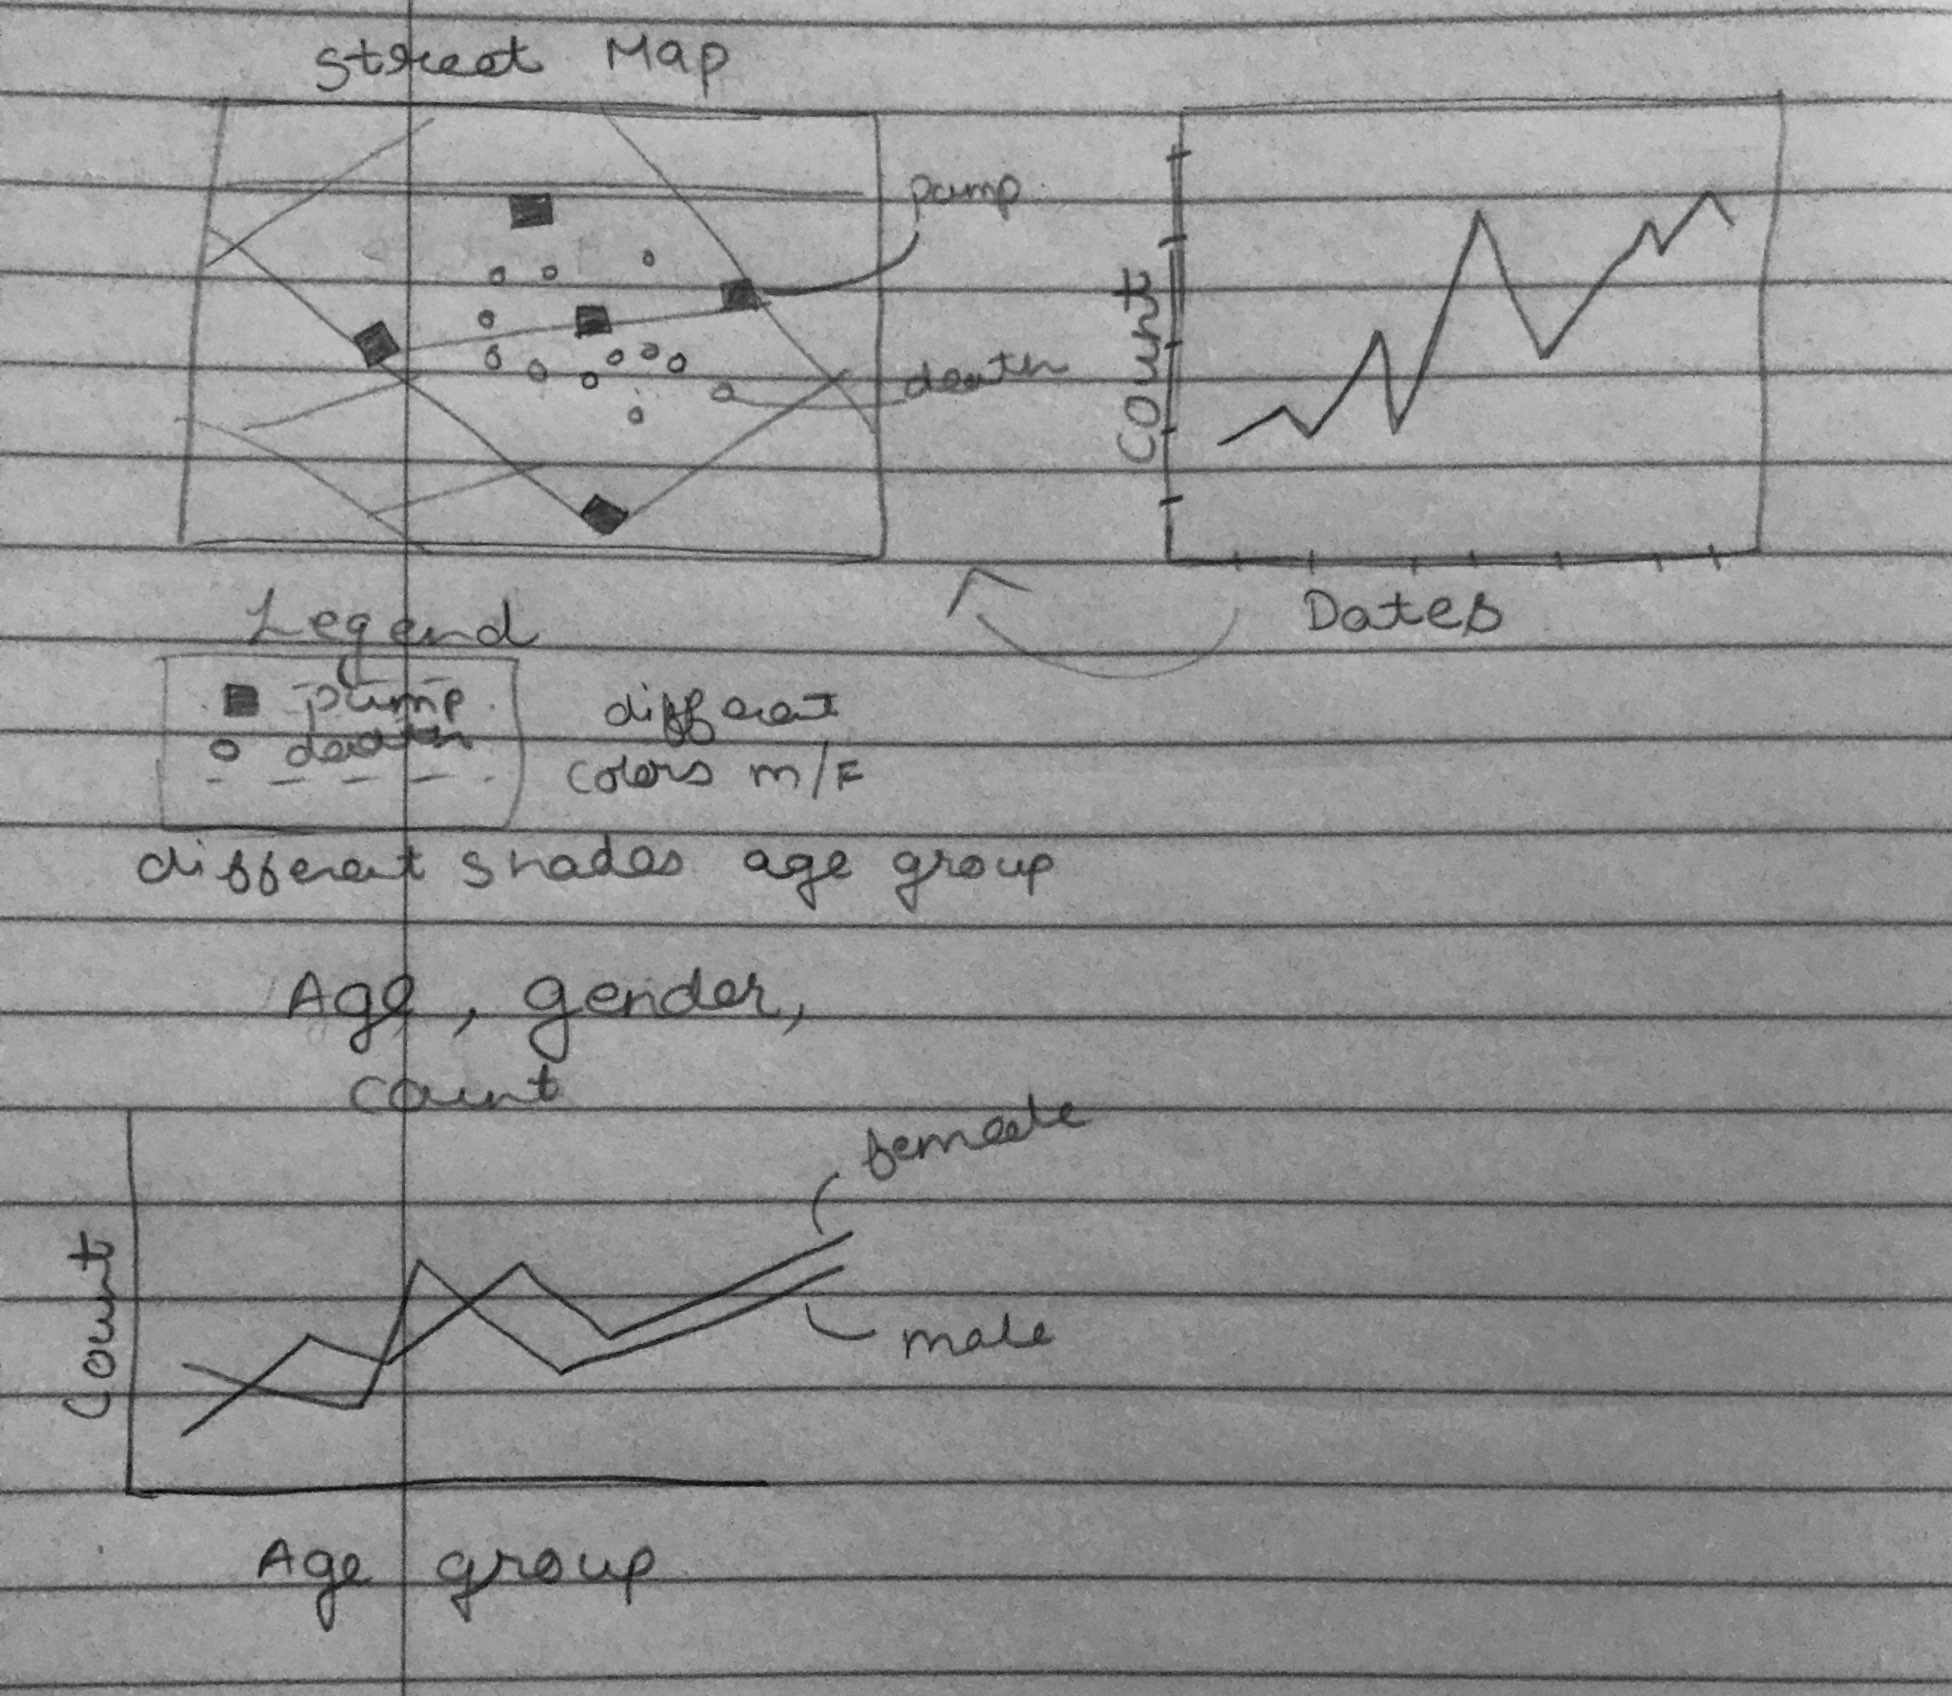 Street Map
pump
death
Count
Dates
Legend
pump
death
different
colors m/F
different shades age group
Age, gender,
count
female
male
Count
Age group